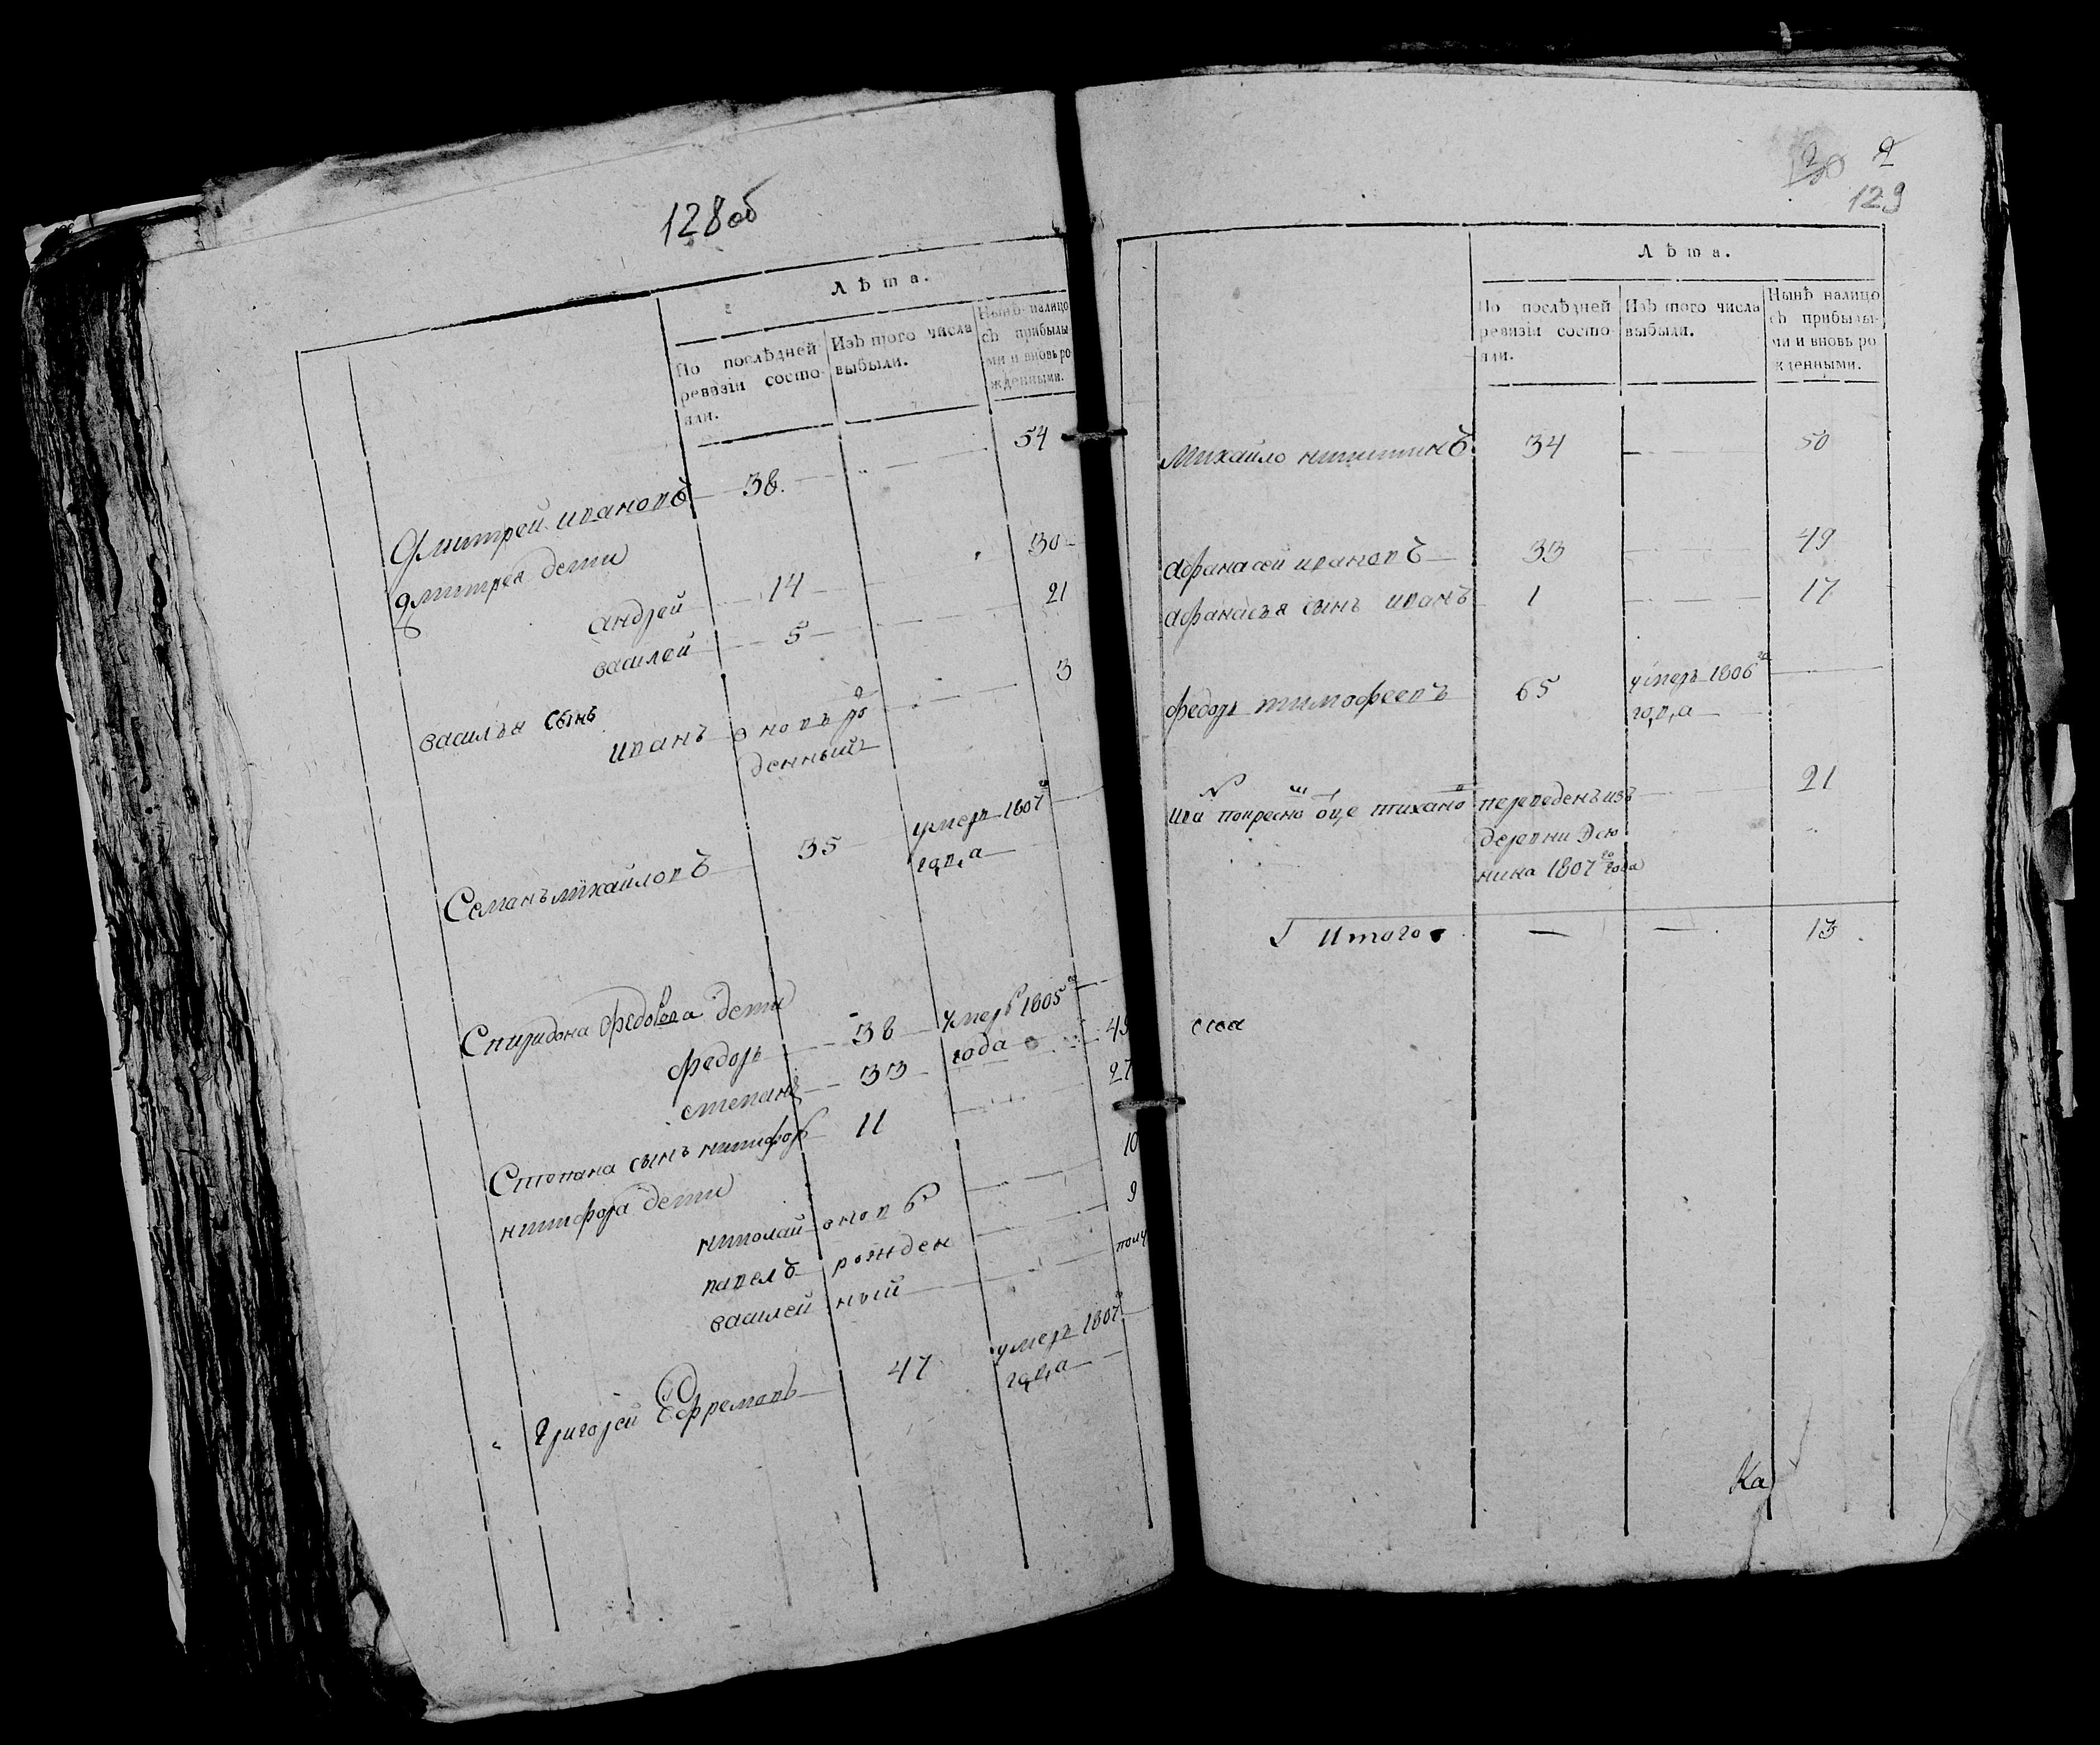 128об
Лѣта.
По послѣдней ревизіи состо-яли.
Изъ того числа выбыли.
Нынѣ налицо съ прибылы-ми и вновь ро-жденными.
Дмитрей ивановъ 38 54
дмитрея дети
андрей 14 30
василей 5 21
василья сынъ
иванъ вновь ро 3
денный
Семанъ михайловъ 35 умеръ 1807го
года
Спиридона федорова дети
федоръ 38 умеръ 1805го
степанъ 33 года 49
Степана сынъ никифоръ 11 27
никифора дети
николай вновь 10
павелъ рожден 9
василей ный полу
Григорей Ефремовъ 47 умеръ 1807го
года
2
129
Лѣта.
По послѣдней ревизіи состо-яли.
Изъ того числа выбыли.
Нынѣ налицо съ прибылы-ми и вновь ро-жденными.
Михайло никитинъ 34 50
афанасей ивановъ 33 49
афанасья сынъ иванъ 1 17
федоръ тимофеевъ 65 умеръ 1806го
года
тихано переведенъ изъ 21
деревни
нина 1807го года
Итого 13
Ка